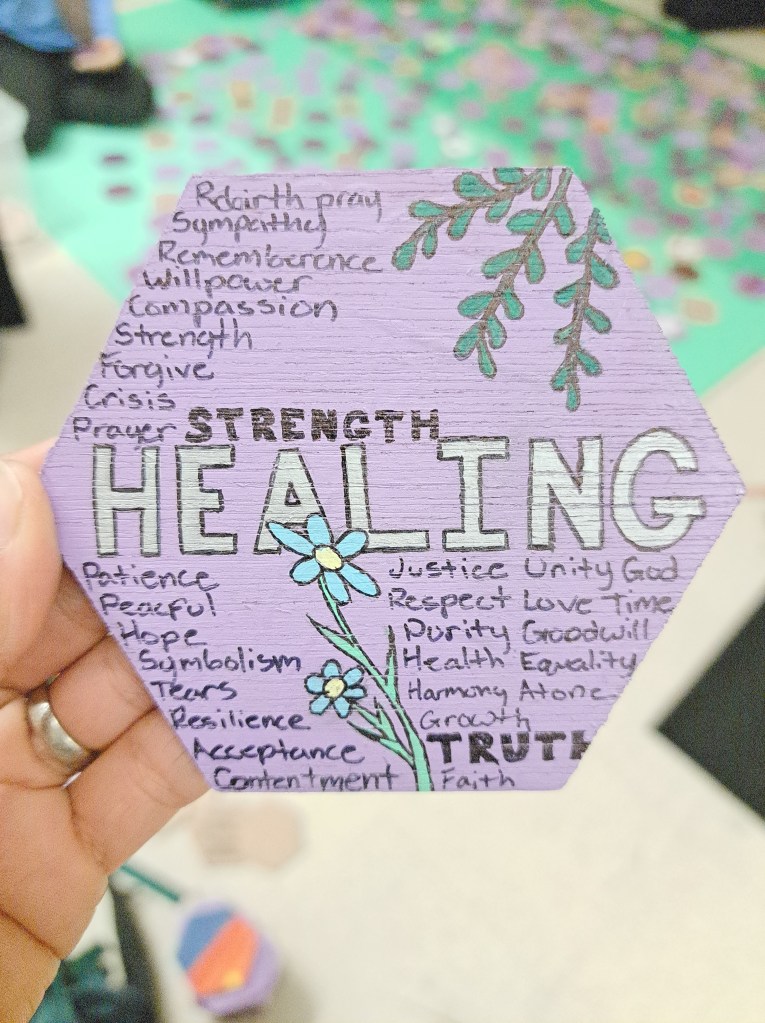 Rebirth pray
Sympathy
Rememberence
Willpower
Compassion
Strength
Forgive
Crisis
Prayer STRENGTH
HEALING
Patience
Peaceful
Hope
Symbolism
Tears
Resilience
Acceptance
Contentment
Justice Unity God
Respect Love Time
Purity Goodwill
Health Equality
Harmony Atone
Growth
TRUTH
Faith